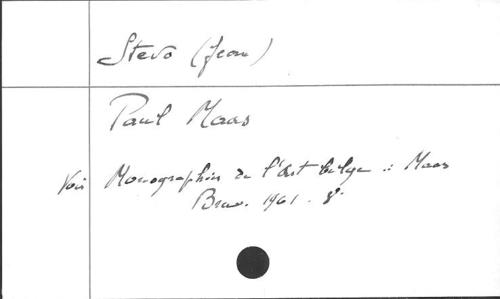 Stevo (Jean)
Paul Maas
Voir Monographies de l'Art belge : Maas
Brux. 1961. 8°